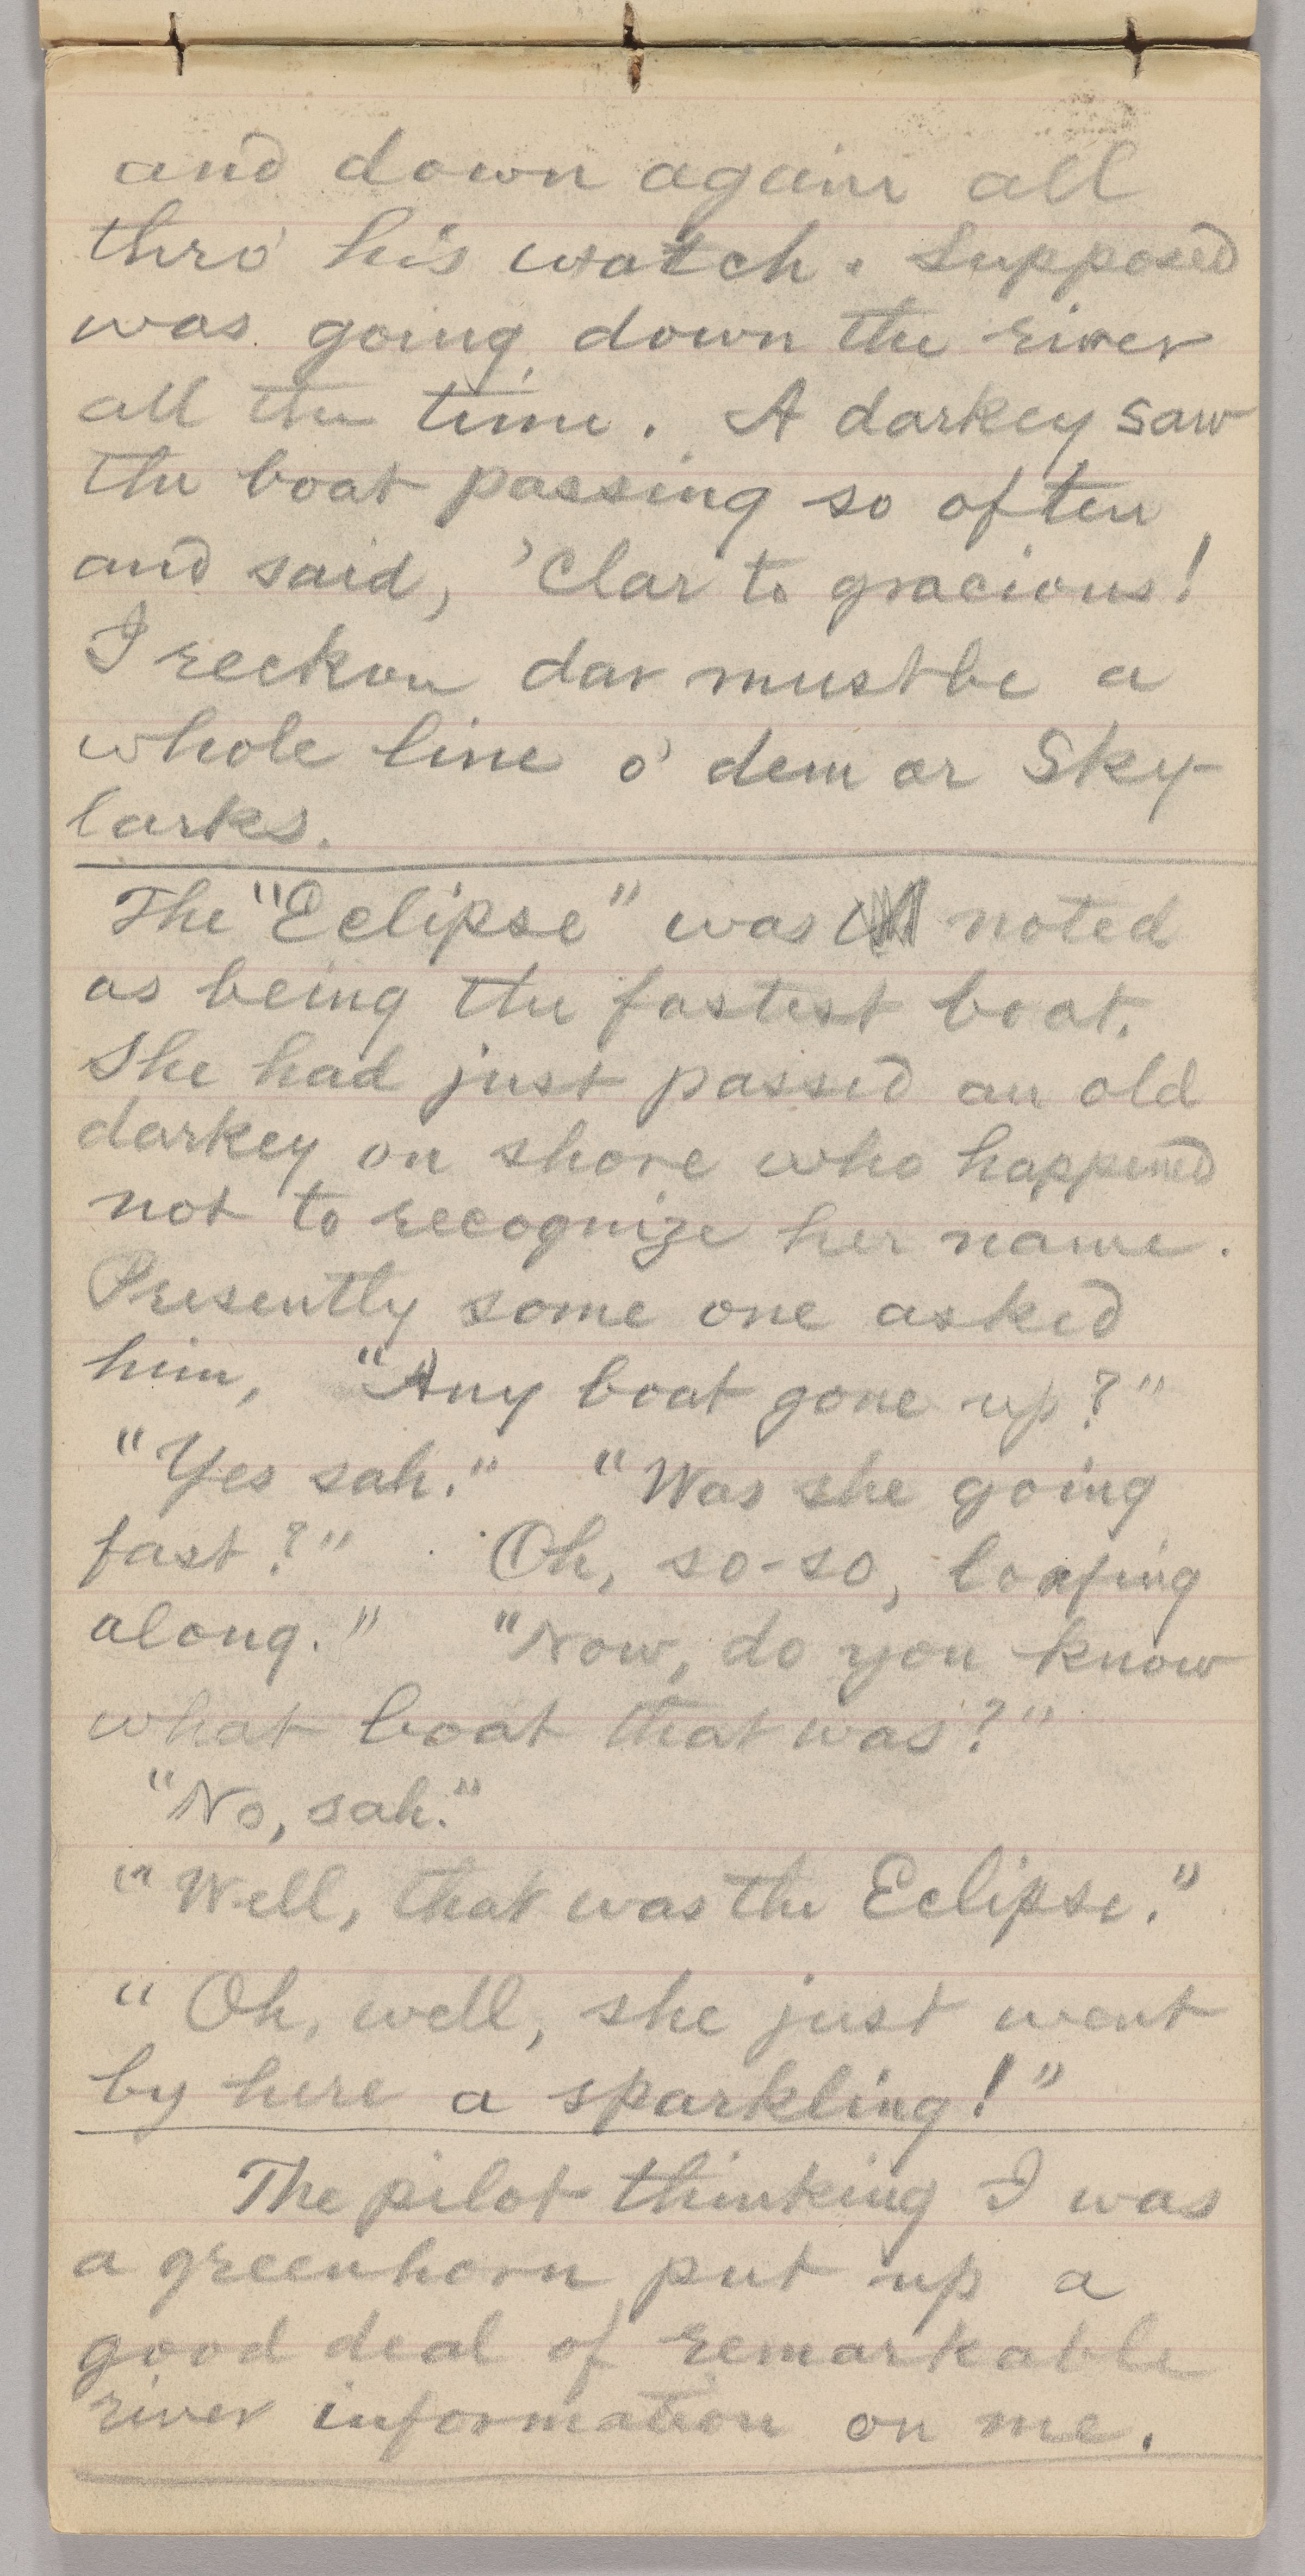 and down again all
thro' his watch. Supposed
was going down the river
all the time. A darkey saw
the boat passing so often
and said, 'Clar to gracious!
I reckon dar must be a
whole line o' dem ar Sky-
larks.
The "Eclipse" was noted
as being the fastest boat.
She had just passed an old
darkey on shore who happened
not to recognize her name.
Presently some one asked
him, "Any boat gone up?"
"Yes sah." "Was she going
fast?" Oh, so-so, loafing
along." "Now, do you know
what boat that was?"
"No, sah."
"Well, that was the Eclipse."
"Oh, well, she just went
by here a sparkling!"
The pilot thinking I was
a greenhorn put up a
good deal of remarkable
river information on me.